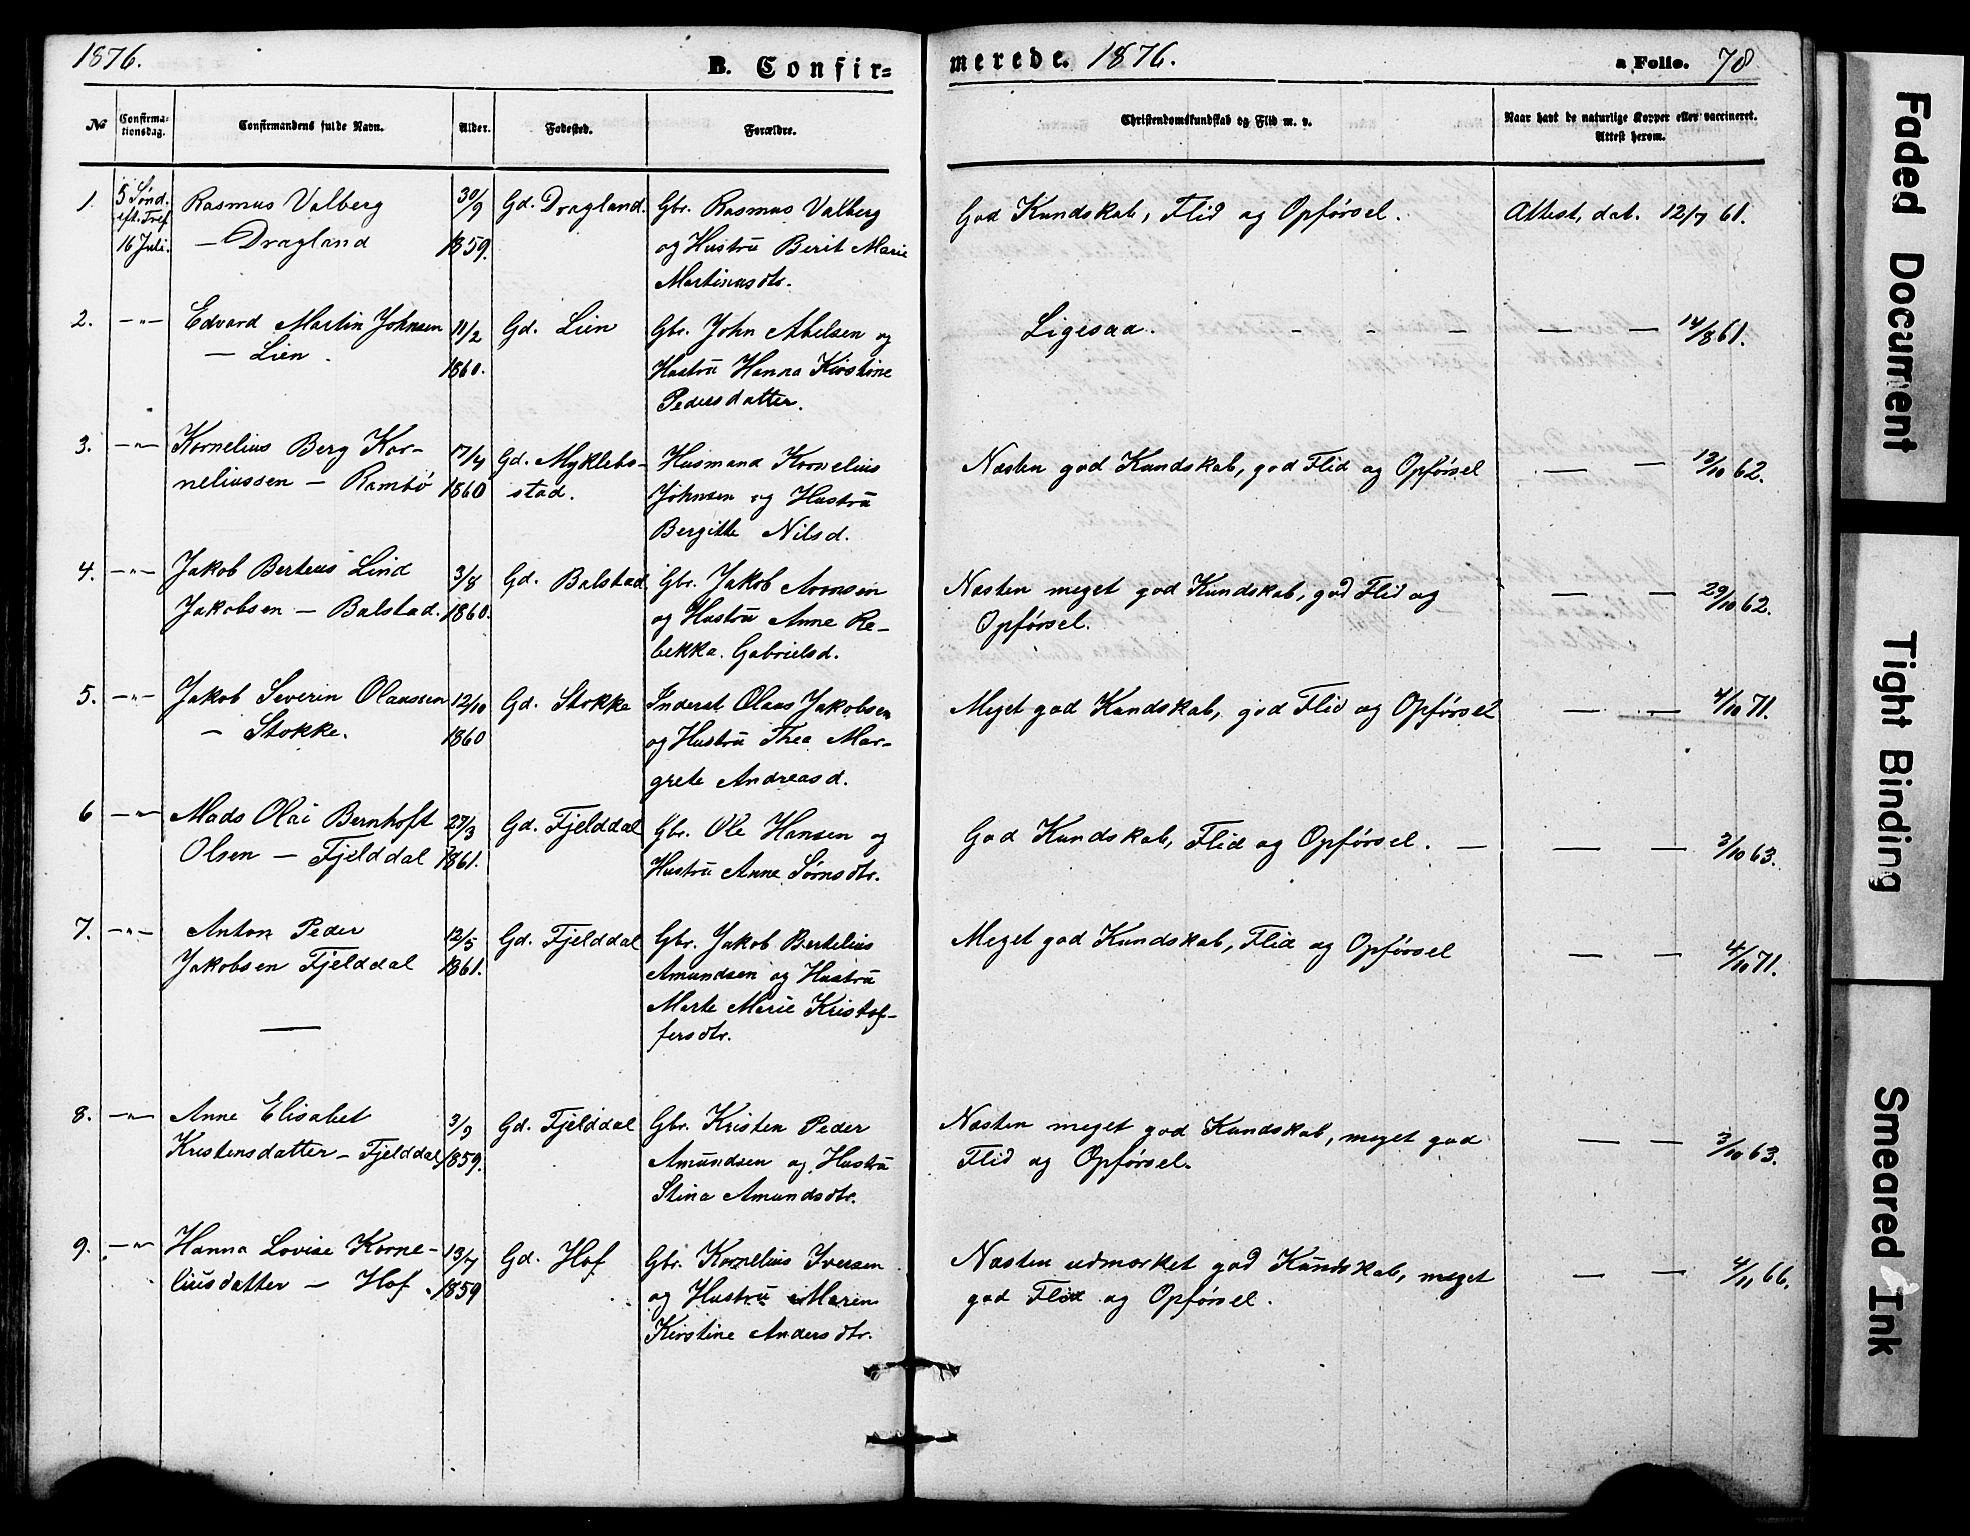 1876.
B. Confir=
merede. 1876.
a Folio. 78
No
Confirma-
tionsdag.
Confirmandens fulde Navn.
Alder.
Fødested.
Forældre.
Christendomskundskab og Flid m. v.
Naar havt de naturlige Kopper eller vaccineret.
Attest herom.
1. 5 Sønd. Rasmus Valberg 30/9 Gd. Dragland. Gbr. Rasmus Valberg God Kundskab, Flid og Opførsel. Attest, dat. 12/7 61.
eft. Tref. — Dragland 1859. og Hustru Berit Marie
16 Juli. Martinusdtr.
2. —"— Edvard Martin Johnsen 11/2 Gd. Lien Gbr. John Abelsen og Ligesaa. - - - - — — 14/8 61.
— Lien. 1860. Hustru Hanna Kirstine
Pedersdatter.
3. —"— Kornelius Berg Kor- 17/4 Gd. Myklebo- Husmand Kornelius Næsten god Kundskab, god Flid og Opførsel — — 13/10 62.
neliussen — Rambø 1860 stad. Johnsen og Hustru
Bergitte Nilsd.
4. —"— Jakob Berteus Lind 3/8 Gd. Balstad. Gbr. Jakob Aronsen Næsten meget god Kundskab, god Flid og — — 29/10 62.
Jakobsen — Balstad. 1860. og Hustru Anne Re- Opførsel.
bekka. Gabrielsd.
5. —"— Jakob Severin Olaussen 12/10 Gd. Stokke Inderst Olaus Jakobsen Meget god Kundskab, god Flid og Opførsel — — 4/10 71.
— Stokke. 1860 og Hustru Thea Mar-
grete Andreasd.
6 —"— Mads Olai Bernhoft 27/3 Gd. Fjelddal Gbr. Ole Hansen og God Kundskab, Flid og Opførsel. — — — 3/10 63.
Olsen — Fjelddal 1861. Hustru Anne Sørnsdtr.
7. —"— Anton Peder 12/5 Gd. Fjelddal Gbr. Jakob Bertelius Meget god Kundskab, Flid og Opførsel — — 4/10 71.
Jakobsen Fjelddal 1861. Amundsen og Hustru
Marte Marie Kristof-
fersdtr.
8. —"— Anne Elisabet 3/9 Gd. Fjelddal Gbr. Kristen Peder Næsten meget god Kundskab, meget god — — 3/10 63.
Kristensdatter — Fjelddal 1859. Amundsen og Hustru Flid og Opførsel.
Stina Amundsdtr.
9. —"— Hanna Lovise Korne- 13/7 Gd. Hof Gbr. Kornelius Iversen Næsten udmærket god Kundskab, meget — — 4/11 66.
liusdatter — Hof. 1859 og Hustru Maren god Flid og Opførsel.
Kirstine Andersdtr.
Faded Document
Tight Binding
Smeared Ink